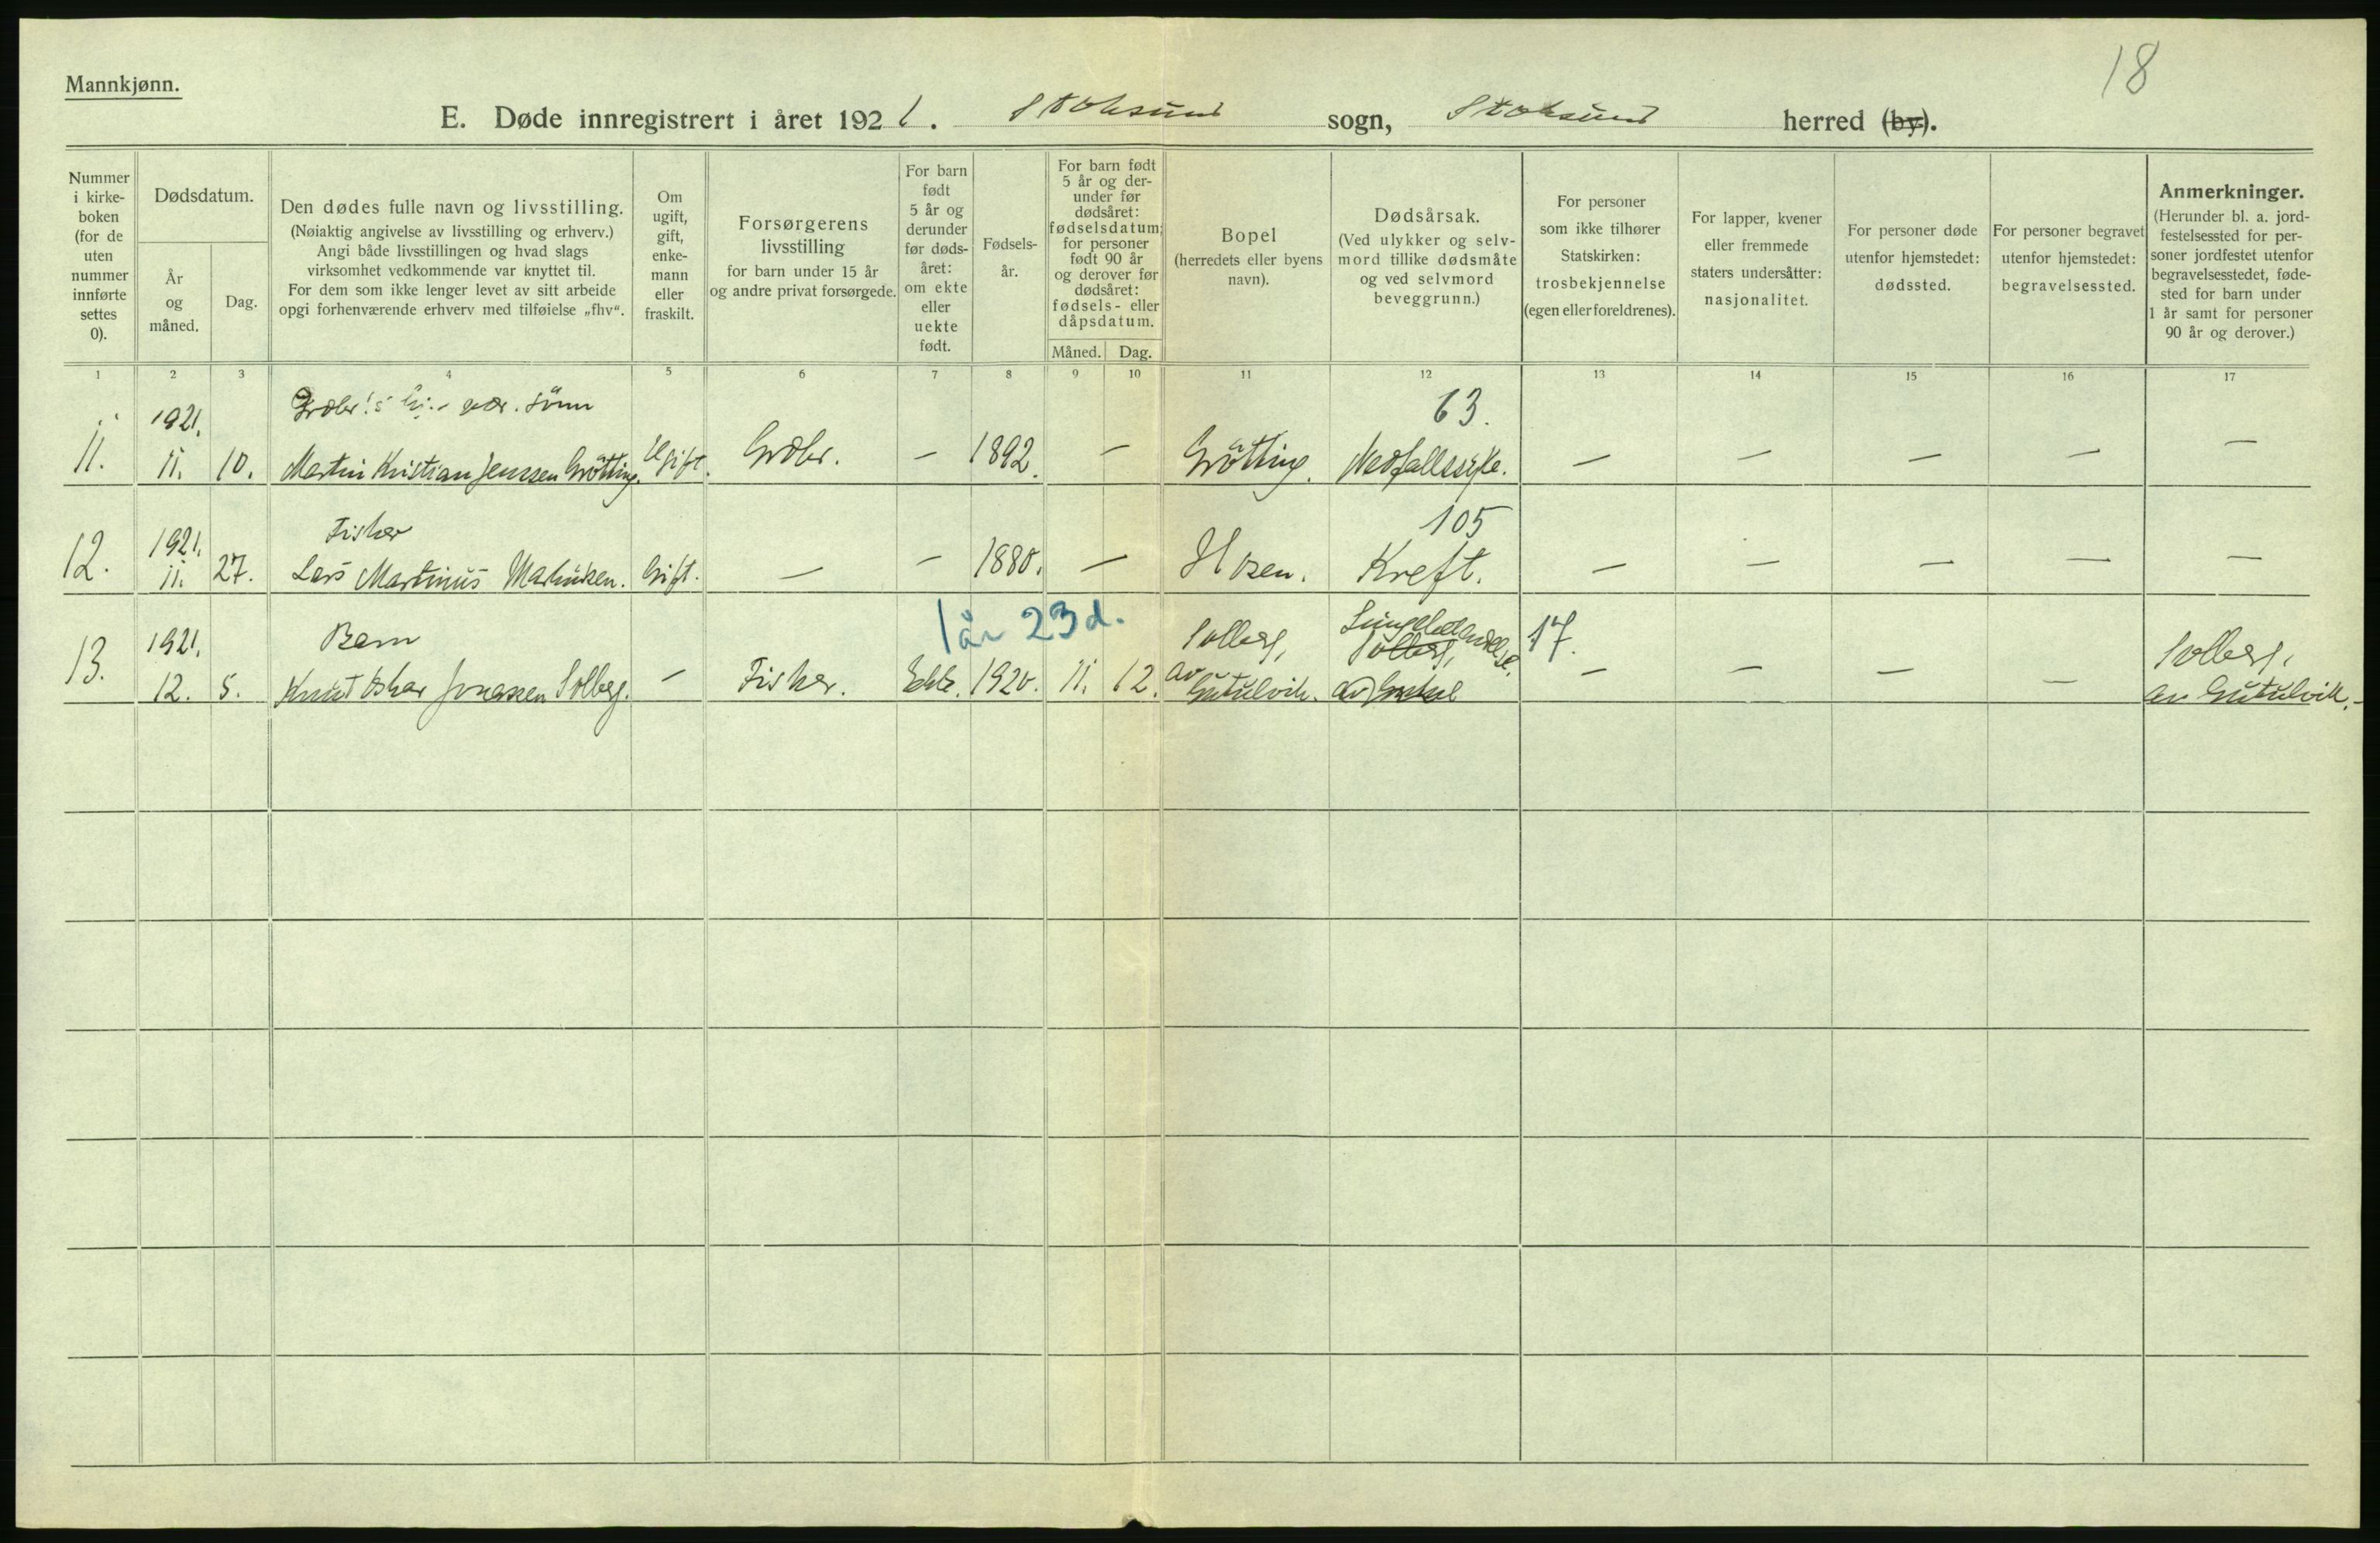 18
Mannkjønn.
E. Døde innregistrert i året 1921. Stoksund sogn, Stoksund herred (by).
Nummer i kirkeboken (for de uten nummer innførte settes 0).
Dødsdatum.
År og måned.
Dag.
Den dødes fulle navn og livsstilling.
(Nøiaktig angivelse av livsstilling og erhverv.)
Angi både livsstillingen og hvad slags
virksomhet vedkommende var knyttet til.
For dem som ikke lenger levet av sitt arbeide
opgi forhenværende erhverv med tilføielse „fhv“.
Om ugift, gift, enkemann eller fraskilt.
Forsørgerens livsstilling
for barn under 15 år
og andre privat forsørgede.
For barn født 5 år og derunder før dødsåret: om ekte eller uekte født.
Fødselsår.
For barn født 5 år og derunder før dødsåret: fødselsdatum; for personer født 90 år og derover før dødsåret: fødsels- eller dåpsdatum.
Måned. Dag.
Bopel
(herredets eller byens navn).
Dødsårsak.
(Ved ulykker og selvmord tillike dødsmåte og ved selvmord beveggrunn.)
For personer som ikke tilhører Statskirken: trosbekjennelse (egen eller foreldrenes).
For lapper, kvener eller fremmede staters undersåtter: nasjonalitet.
For personer døde utenfor hjemstedet: dødssted.
For personer begravet utenfor hjemstedet: begravelsessted.
Anmerkninger.
(Herunder bl. a. jordfestelsessted for personer jordfestet utenfor begravelsesstedet, fødested for barn under 1 år samt for personer 90 år og derover.)
1 2 3 4 5 6 7 8 9 10 11 12 13 14 15 16 17
1921. sönn 63.
11. 11. 10. Martin Kristian Jenssen Grötting. Ugift. Grdbr. — 1892. — Grötting. Nedfallssyke. — — — — —
1921. Fisker 105
12. 11. 27. Lars Martinus Martinsen. Gift. — — 1880. — Hosen. Kreft. — — — — —
1 år 23 d.
1921. Barn Solberg, Lungebetendelse. Solberg, 17. Solberg,
13. 12. 5. Knut Oskar Jonassen Solberg. — Fisker. Ekte. 1920. 11. 12. av Gutulvik. av — — — — av Gutulvik.